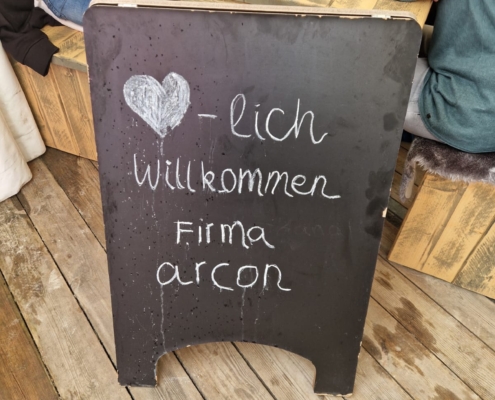 ❤-lich
Willkommen
Firma
arcon